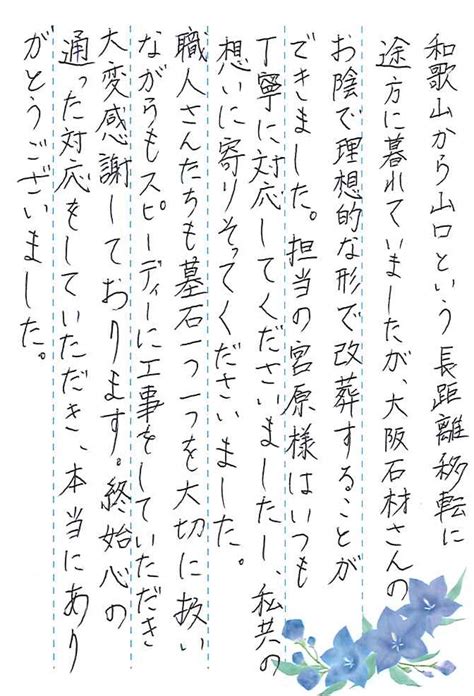 和歌山から山口という長距離移転に
途方に暮れていましたが、大阪石材さんの
お陰で理想的な形で改葬することが
できました。担当の宮原様はいつも
丁寧に対応してくださいましたし、私共の
想いに寄りそってくださいました。
職人さんたちも墓石一つ一つを大切に扱い
ながらもスピーディーに工事をしていただき
大変感謝しております。終始心の
通った対応をしていただき、本当にあり
がとうございました。